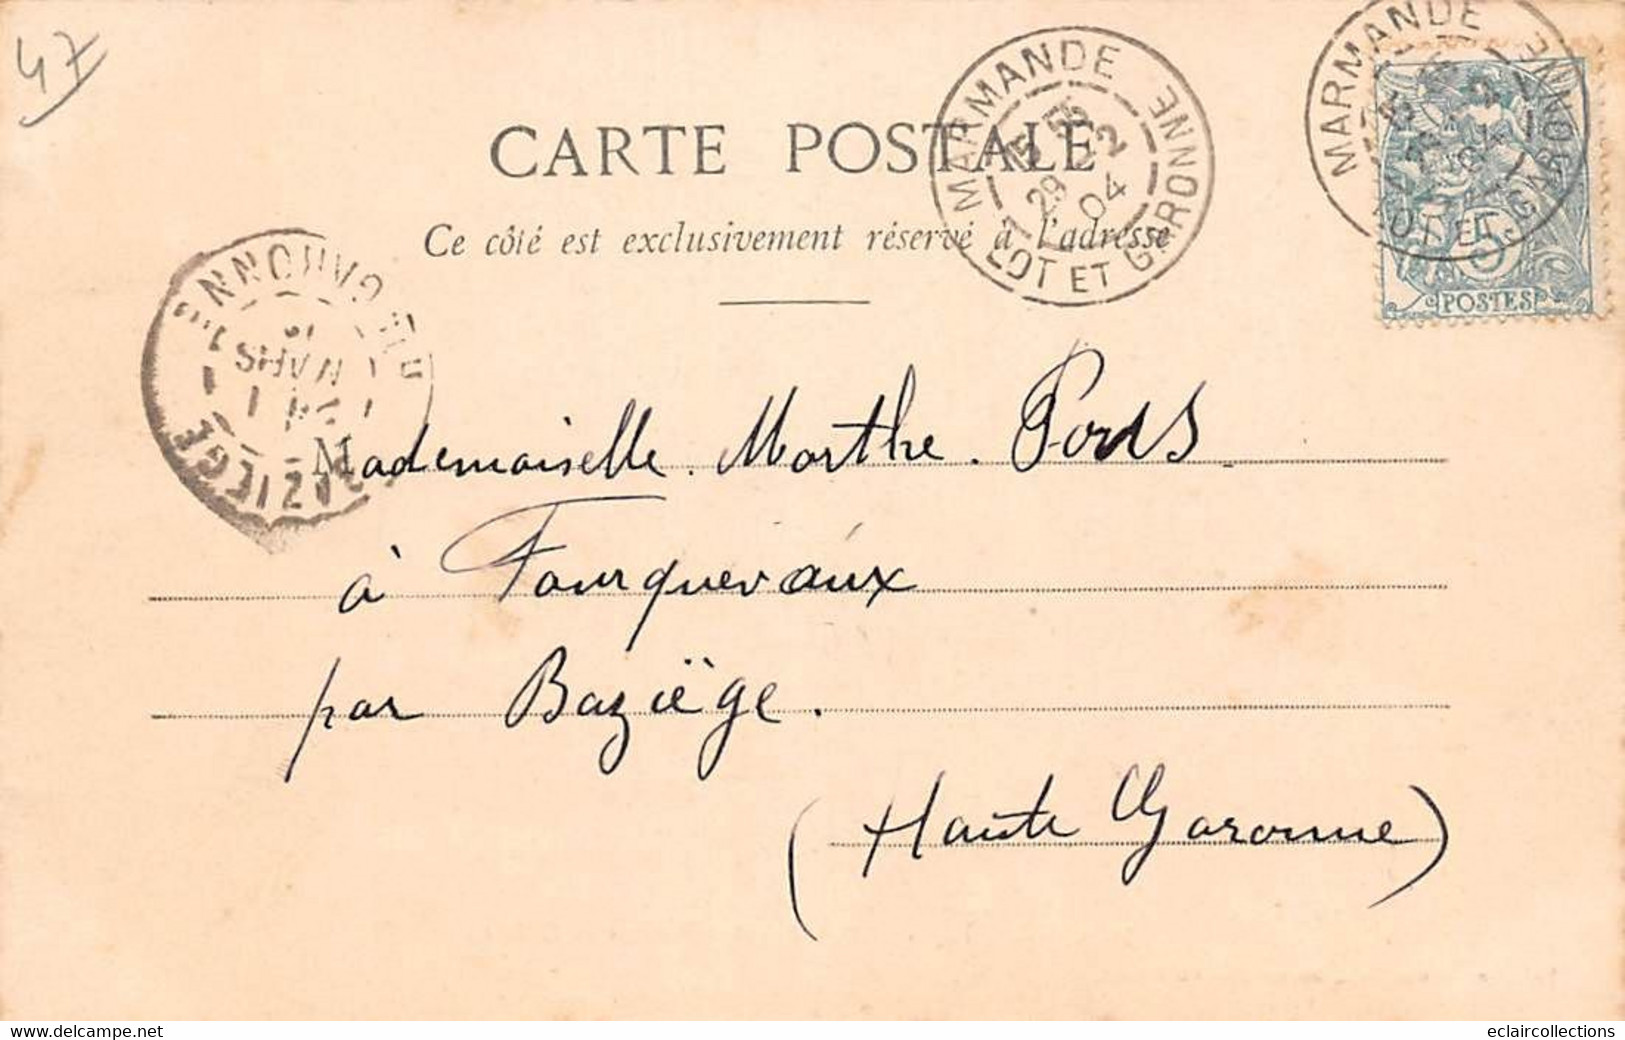 47
CARTE POSTALE
Ce côté est exclusivement réservé à l'adresse
MARMANDE
15 55
29 2
04
LOT ET GARONNE
MARMANDE
LOT ET GARONNE
5
POSTES
Hte GARONNE
MARS
BAZIEGE
Mademoiselle Marthe Pons
à Fourquevaux
par Baziège.
(Haute Garonne)
eclaircollections